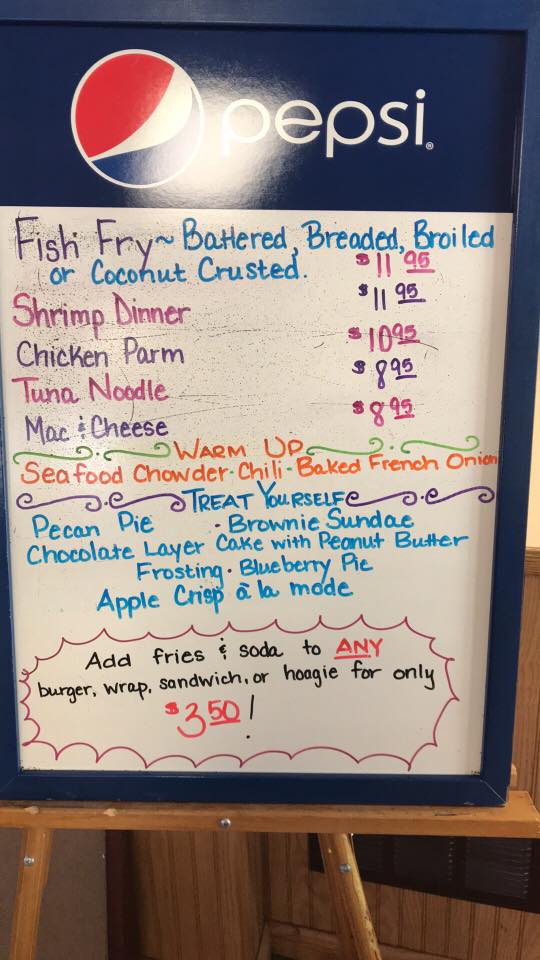 pepsi
Fish Fry~ Battered, Breaded, Broiled
or Coconut Crusted. $11 95
Shrimp Dinner $11 95
Chicken Parm $10 95
Tuna Noodle $8 95
Mac & Cheese $8 95
WARM UP
Seafood Chowder · Chili · Baked French Onion
TREAT YOURSELF
Pecan Pie · Brownie Sundae
Chocolate Layer Cake with Peanut Butter
Frosting · Blueberry Pie
Apple Crisp à la mode
Add fries & soda to ANY
burger, wrap, sandwich, or hoagie for only
$3 50!